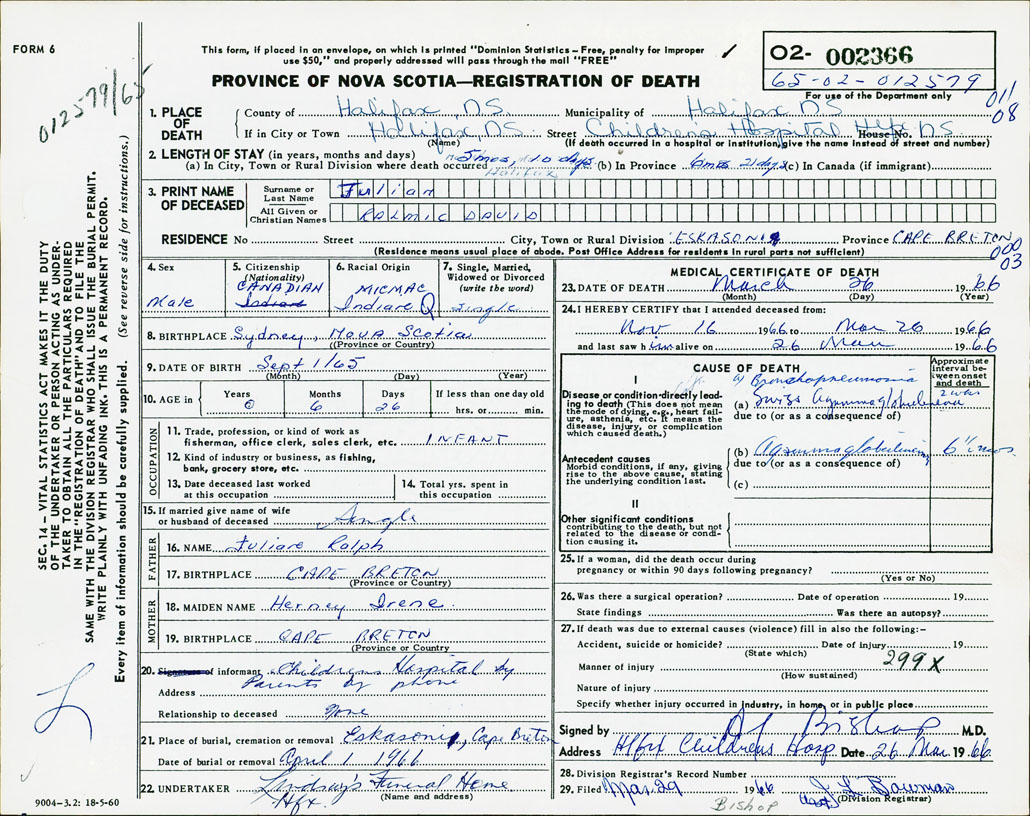 FORM 6
This form, if placed in an envelope, on which is printed "Dominion Statistics – Free, penalty for improper
use $50," and properly addressed will pass through the mail "FREE"
PROVINCE OF NOVA SCOTIA—REGISTRATION OF DEATH
02- 002366
65-02-012579
For use of the Department only
011
08
012579/65
SEC. 14 – VITAL STATISTICS ACT MAKES IT THE DUTY
OF THE UNDERTAKER OR PERSON ACTING AS UNDER-
TAKER TO OBTAIN ALL THE PARTICULARS REQUIRED
IN THE "REGISTRATION OF DEATH" AND TO FILE THE
SAME WITH THE DIVISION REGISTRAR WHO SHALL ISSUE THE BURIAL PERMIT.
WRITE PLAINLY WITH UNFADING INK. THIS IS A PERMANENT RECORD.
Every item of information should be carefully supplied. (See reverse side for instructions.)
1. PLACE OF DEATH
County of Halifax, N.S. Municipality of Halifax N.S
If in City or Town Halifax, N.S. Street Childrens Hospital Hfx NS House No.
(Name) (If death occurred in a hospital or institution, give the name instead of street and number)
2. LENGTH OF STAY (in years, months and days)
(a) In City, Town or Rural Division where death occurred 5 mos, 10 days (b) In Province 6 mos 21 days (c) In Canada (if immigrant)
Halifax
3. PRINT NAME OF DECEASED
Surname or Last Name Julian
All Given or Christian Names DAVID
RESIDENCE No Street City, Town or Rural Division ESKASONI Province CAPE BRETON
(Residence means usual place of abode. Post Office Address for residents in rural parts not sufficient)
000
03
4. Sex Male
5. Citizenship (Nationality) CANADIAN Indian
6. Racial Origin MICMAC Indian Q
7. Single, Married, Widowed or Divorced (write the word) Single
8. BIRTHPLACE Sydney, Nova Scotia
(Province or Country)
9. DATE OF BIRTH Sept 1/65
(Month) (Day) (Year)
10. AGE in Years 0 Months 6 Days 26 If less than one day old hrs. or min.
OCCUPATION
11. Trade, profession, or kind of work as
fisherman, office clerk, sales clerk, etc. INFANT
12. Kind of industry or business, as fishing,
bank, grocery store, etc.
13. Date deceased last worked
at this occupation
14. Total yrs. spent in
this occupation
15. If married give name of wife
or husband of deceased Single
FATHER
16. NAME Juliane Ralph
17. BIRTHPLACE CAPE BRETON
(Province or Country)
MOTHER
18. MAIDEN NAME Herney Irene
19. BIRTHPLACE CAPE BRETON
(Province or Country)
20. Signature of informant Childrens Hospital by
Parents by phone
Address
Relationship to deceased None
21. Place of burial, cremation or removal Eskasoni, Cape Breton
Date of burial or removal April 1, 1966
22. UNDERTAKER Lindsay's Funeral Home
Hfx. (Name and address)
9004–3.2: 18-5-60
MEDICAL CERTIFICATE OF DEATH
23. DATE OF DEATH March 26 1966
(Month) (Day) (Year)
24. I HEREBY CERTIFY that I attended deceased from:
Nov 16 1966 to Mar 26 1966
and last saw him alive on 26 Mar 1966
CAUSE OF DEATH
Approximate interval between onset and death
I
Disease or condition directly leading to death (This does not mean the mode of dying, e.g., heart failure, asthenia, etc. It means the disease, injury, or complication which caused death.)
a) Bronchopneumonia 2 wks
(a) Swiss Agammaglobulinemia
due to (or as a consequence of)
Antecedent causes
Morbid conditions, if any, giving rise to the above cause, stating the underlying condition last.
(b) Agammaglobulinemia 6 mos.
due to (or as a consequence of)
(c)
II
Other significant conditions
contributing to the death, but not related to the disease or condition causing it.
25. If a woman, did the death occur during
pregnancy or within 90 days following pregnancy?
(Yes or No)
26. Was there a surgical operation? Date of operation 19
State findings Was there an autopsy?
27. If death was due to external causes (violence) fill in also the following:–
Accident, suicide or homicide? Date of injury 19
(State which) 299X
Manner of injury
(How sustained)
Nature of injury
Specify whether injury occurred in industry, in home, or in public place
Signed by Bishop M.D.
Address Hlfx Childrens Hosp. Date 26 Mar 1966
28. Division Registrar's Record Number
29. Filed Mar. 29 1966 Bowman
(Division Registrar)
Bishop